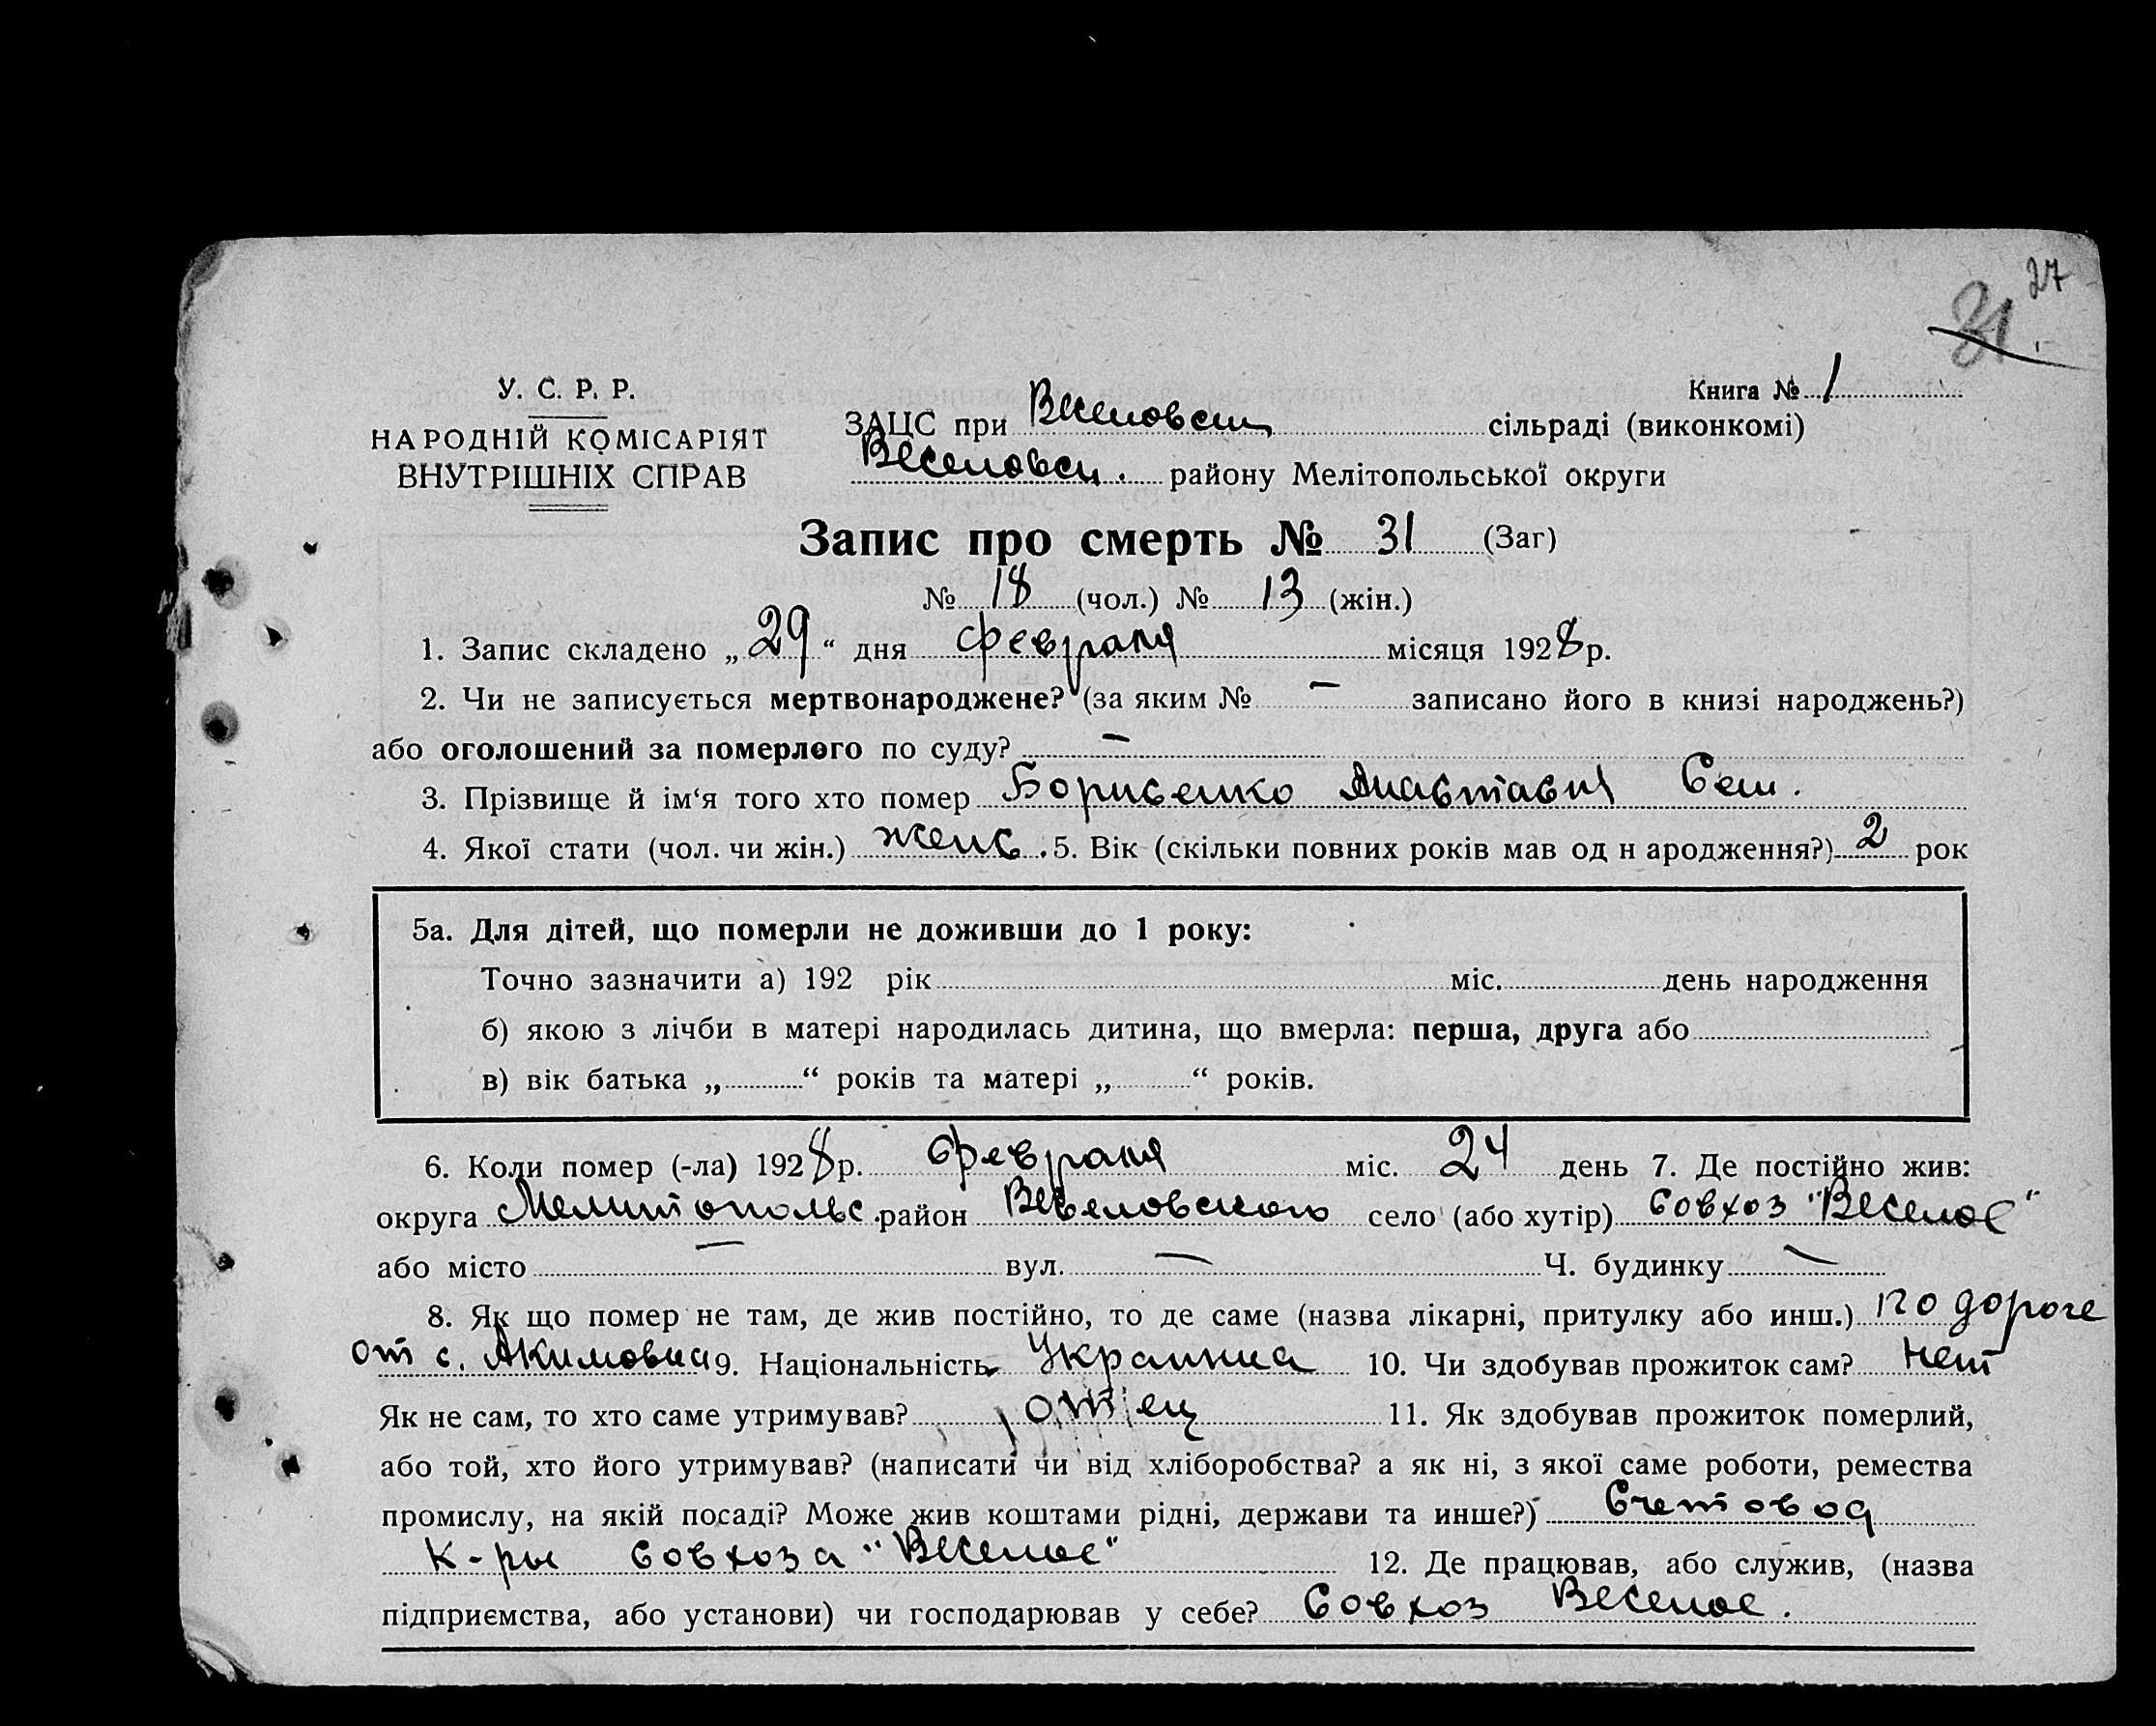 27
31
У. С. Р. Р.
Книга № 1
НАРОДНІЙ КОМІСАРІЯТ
ВНУТРІШНІХ СПРАВ
ЗАЦС при Веселовськ сільраді (виконкомі)
Веселовск. району Мелітопольської округи
Запис про смерть № 31 (Заг)
№ 18 (чол.) № 13 (жін.)
1. Запис складено „29“ дня февраля місяця 1928 р.
2. Чи не записується мертвонароджене? (за яким № — записано його в книзі народжень?)
або оголошений за померлого по суду? —
3. Прізвище й ім‘я того хто помер Борисенко Анастасия Сем.
4. Якої стати (чол. чи жін.) женс. 5. Вік (скільки повних років мав од н ародження?) 2 рок
5а. Для дітей, що померли не доживши до 1 року:
Точно зазначити а) 192 рік міс. день народження
б) якою з лічби в матері народилась дитина, що вмерла: перша, друга або
в) вік батька „ “ років та матері „ “ років.
6. Коли помер (-ла) 1928 р. февраля міс. 24 день 7. Де постійно жив:
округа Мелитопольс. район Веселовского село (або хутір) совхоз "Веселое"
або місто — вул. — Ч. будинку —
8. Як що помер не там, де жив постійно, то де саме (назва лікарні, притулку або инш.) по дороге
от с. Акимовка 9. Національність Украинка 10. Чи здобував прожиток сам? нет
Як не сам, то хто саме утримував? отец 11. Як здобував прожиток померлий,
або той, хто його утримував? (написати чи від хліборобства? а як ні, з якої саме роботи, ремества
промислу, на якій посаді? Може жив коштами рідні, держави та инше?) Счетовод
к-ры совхоза "Веселое" 12. Де працював, або служив, (назва
підприємства, або установи) чи господарював у себе? Совхоз Веселое.